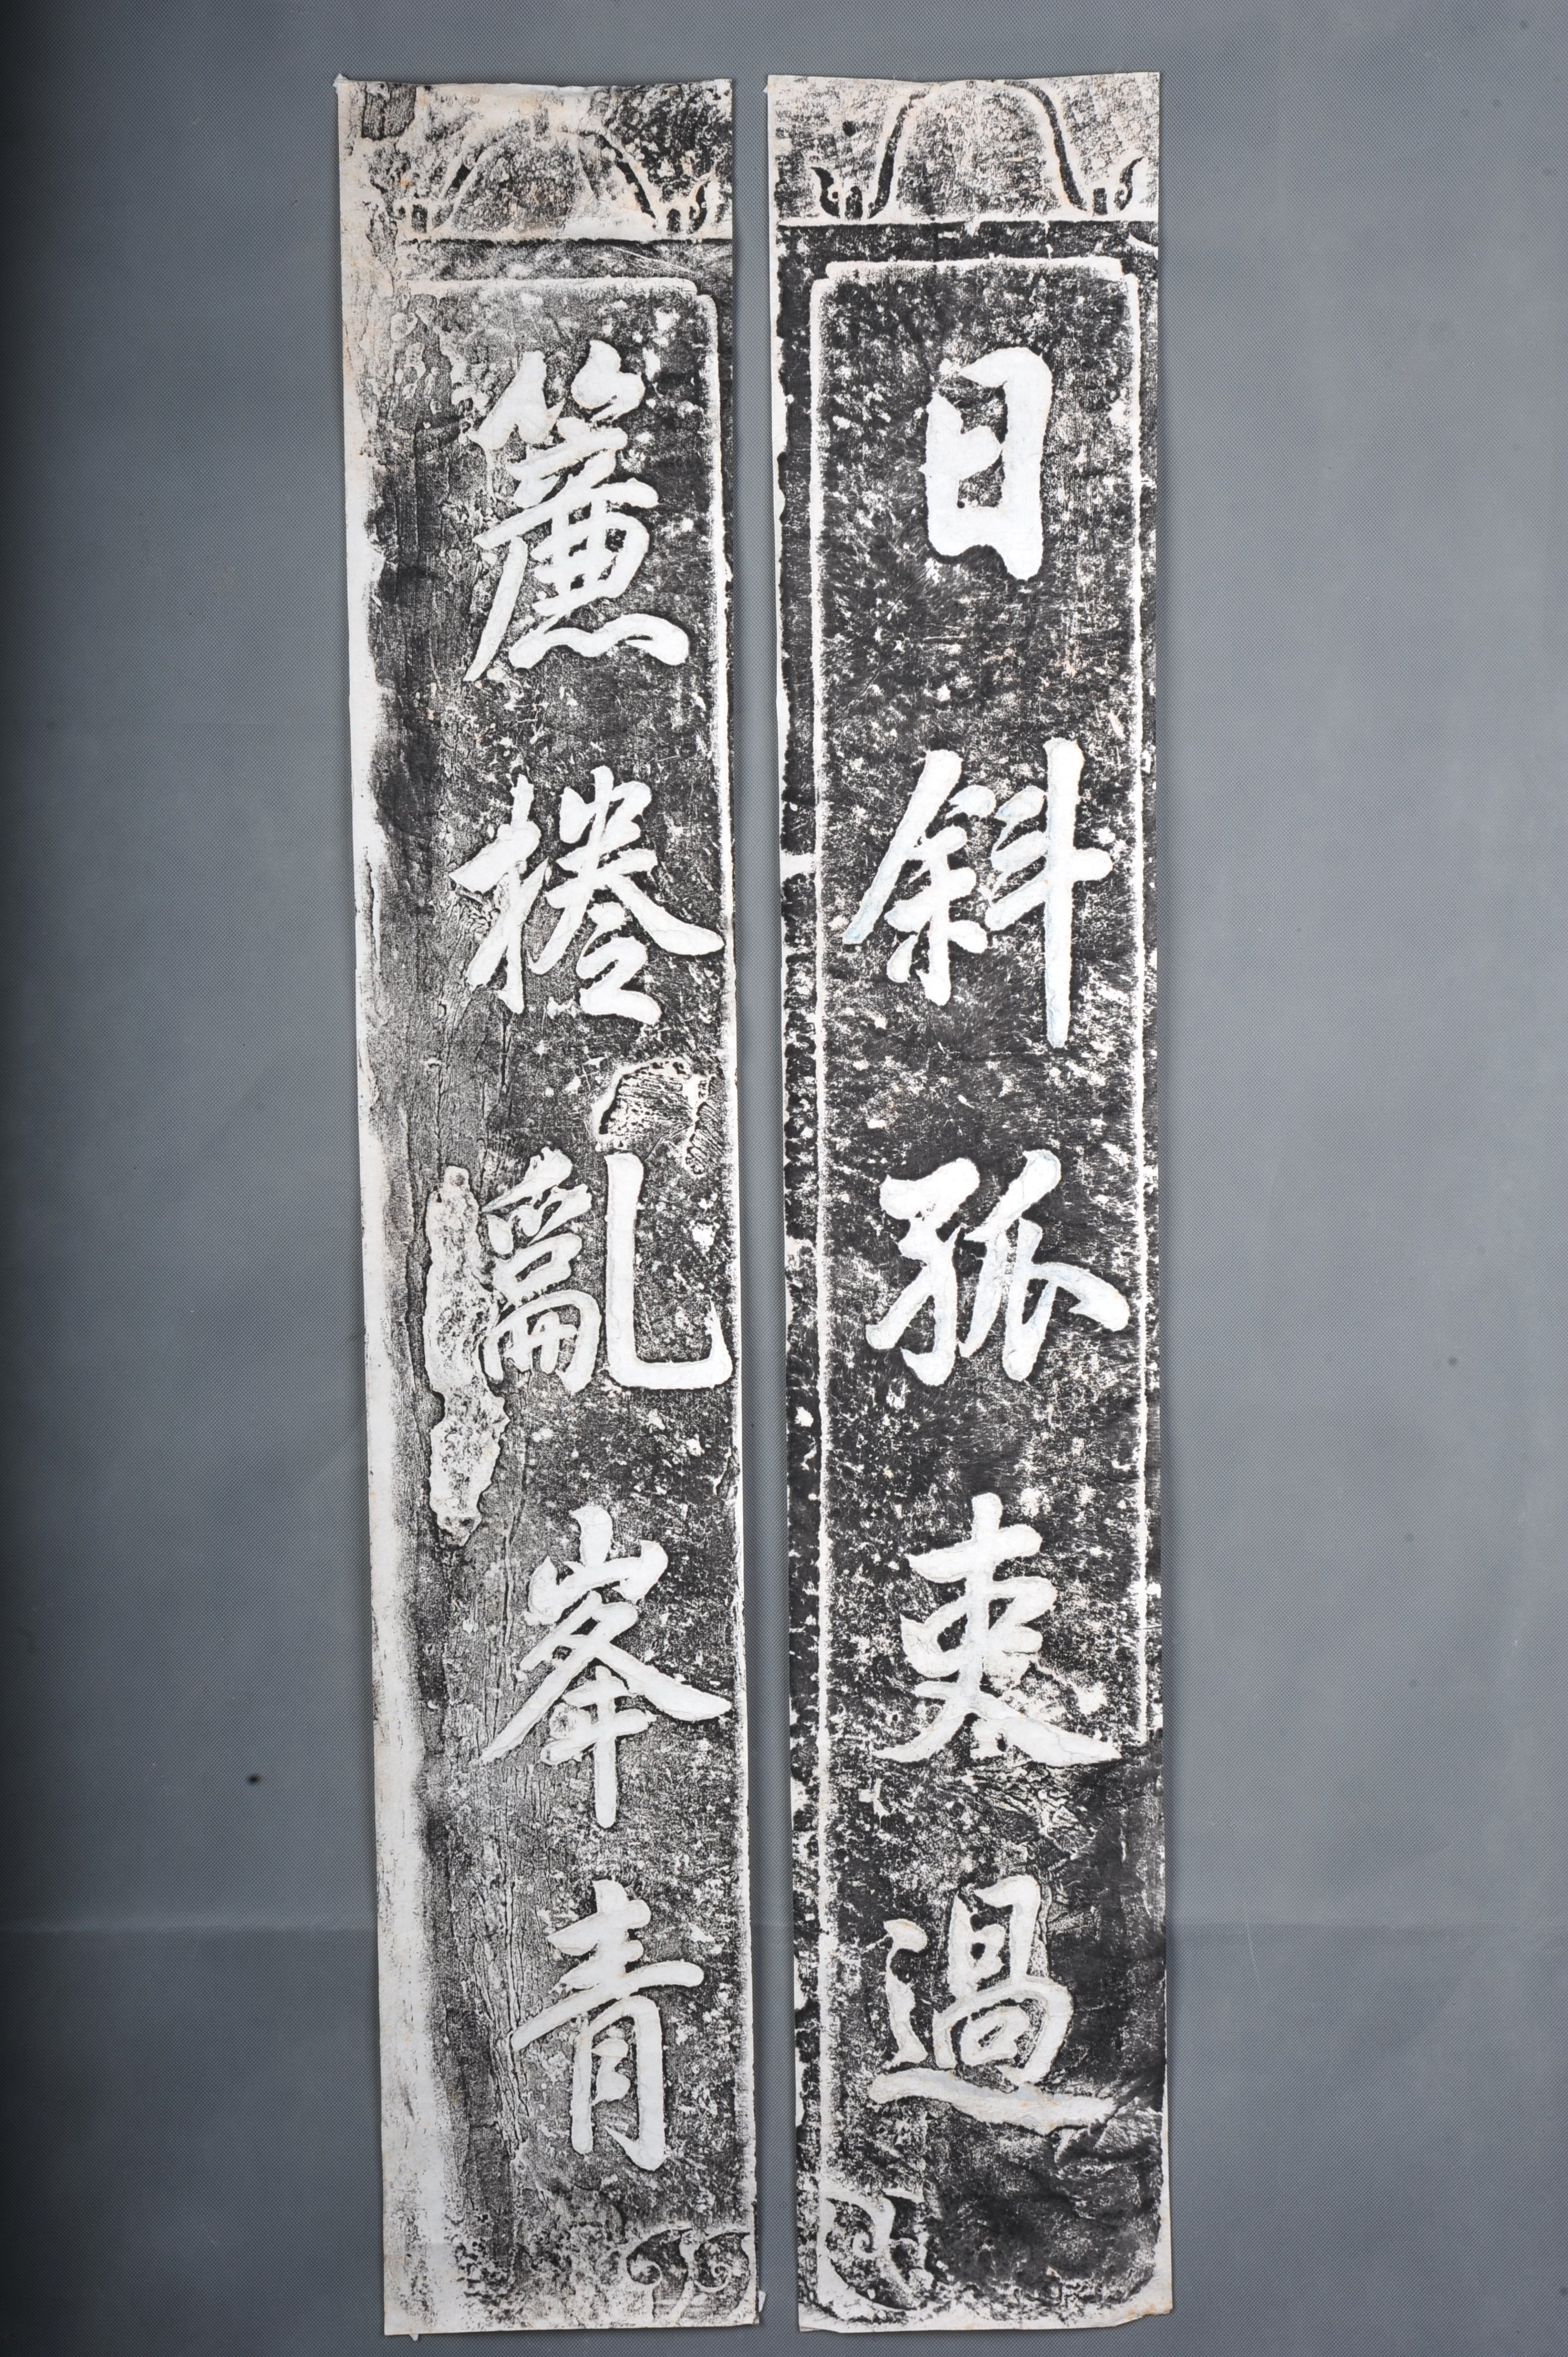 日斜孤吏過
簾捲亂峯青